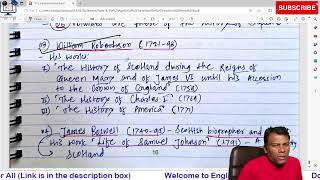 SUBSCRIBE
William Robertson (1721-93)
- His works:
I) "The History of Scotland during the Reigns of
Queen Mary and of James VI until his Accession
to the Crown of England (1758)
II) "The History of Charles (1769)
III) "The History of America" (1777)
James Boswell (1740-95) - Scottish biographer and
His work 'Life of Samuel Johnson' (1791) - A
Scotland
er All (Link is in the description box) Welcome to Englis